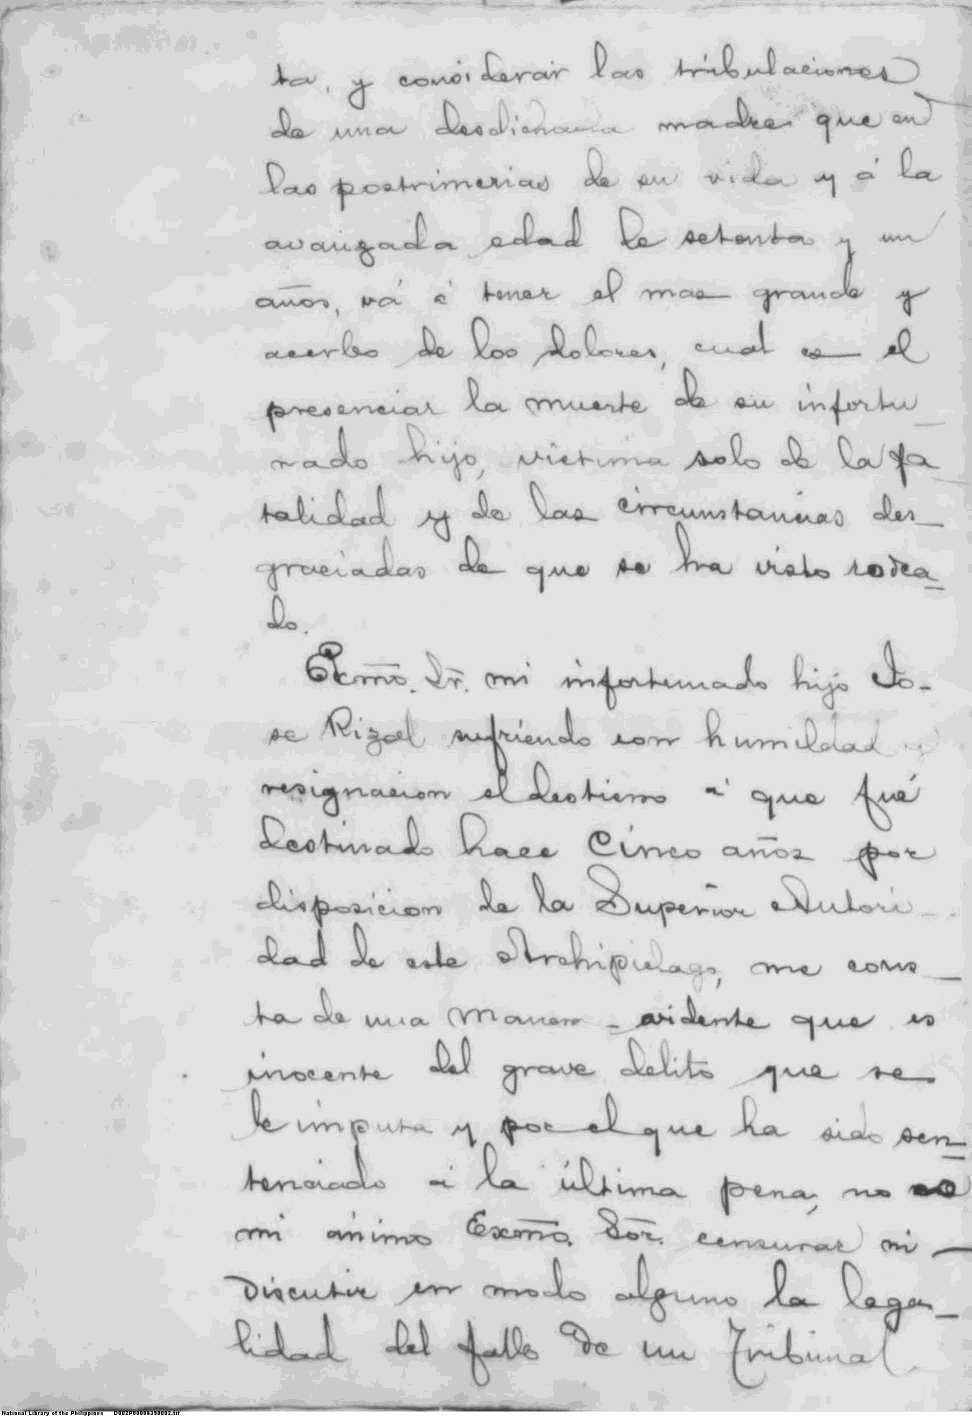 ta, y considerar las tribulaciones
de una desdichada madre que en
las postrimerias de su vida y á la
avanzada edad de setenta y un
años, vá á tener el mas grande y
acerbo de los dolores, cual es el
presenciar la muerte de su infortu_
nado hijo, victima solo de la fa_
talidad y de las circunstancias des_
graciadas de que se ha visto rodea_
do.
Exmō. Sr̄. mi infortunado hijo Jo-
se Rizal sufriendo con humildad y
resignacion el destierro á que fué
destinado hace Cinco años por
disposicion de la Superior Autori_
dad de este Archipielago, me cons_
ta de una manera evidente que es
inocente del grave delito que se
le imputa y por el que ha sido sen_
tenciado á la última pena, no es
mi ánimo Exmō. Sōr. censurar ni
discutir en modo alguno la lega_
lidad del fallo de un Tribunal
National Library of the Philippines